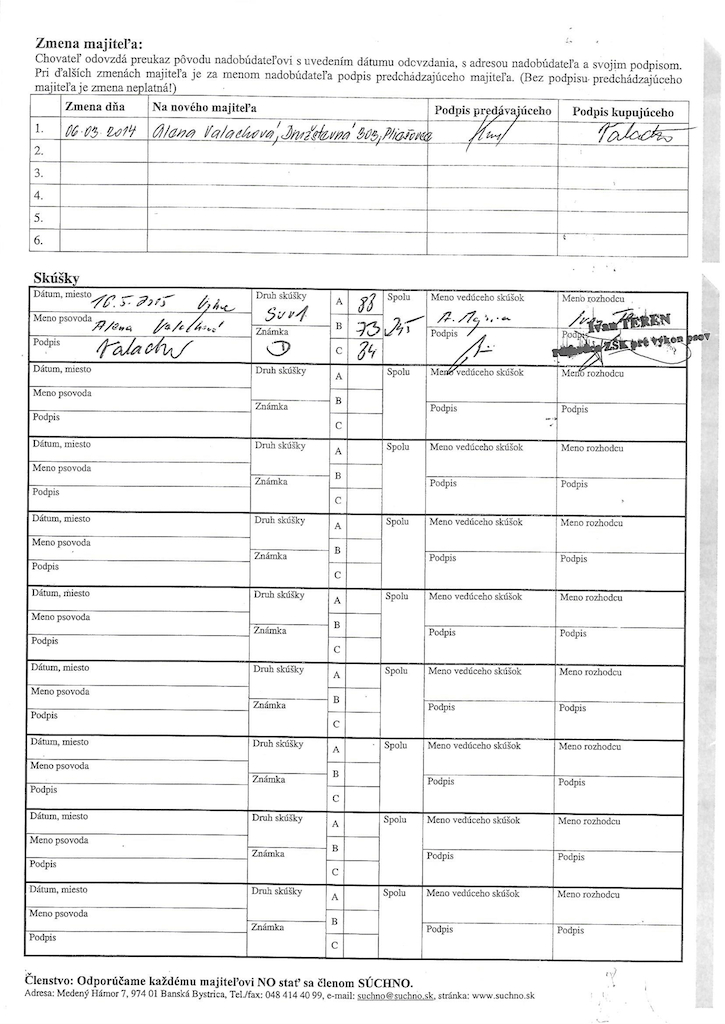 Zmena majiteľa:
Chovateľ odovzdá preukaz pôvodu nadobúdateľovi s uvedením dátumu odovzdania, s adresou nadobúdateľa a svojim podpisom.
Pri ďalších zmenách majiteľa je za menom nadobúdateľa podpis predchádzajúceho majiteľa. (Bez podpisu predchádzajúceho
majiteľa je zmena neplatná!)
Zmena dňa Na nového majiteľa Podpis predávajúceho Podpis kupujúceho
1. 06.03.2014 Alena Valachová, Družstevná 303, Pliešovce
2.
3.
4.
5.
6.
Skúšky
Dátum, miesto 16.5.2015 Vyhne Druh skúšky SVV1 A 88 Spolu Meno vedúceho skúšok Meno rozhodcu
Meno psovoda Alena Valachová B 73
Podpis Známka C 84 Podpis Podpis
Ivan TEREN
ZŠK pre výkon psov
Dátum, miesto Druh skúšky A Spolu Meno vedúceho skúšok Meno rozhodcu
Meno psovoda B
Podpis Známka C Podpis Podpis
Dátum, miesto Druh skúšky A Spolu Meno vedúceho skúšok Meno rozhodcu
Meno psovoda B
Podpis Známka C Podpis Podpis
Dátum, miesto Druh skúšky A Spolu Meno vedúceho skúšok Meno rozhodcu
Meno psovoda B
Podpis Známka C Podpis Podpis
Dátum, miesto Druh skúšky A Spolu Meno vedúceho skúšok Meno rozhodcu
Meno psovoda B
Podpis Známka C Podpis Podpis
Dátum, miesto Druh skúšky A Spolu Meno vedúceho skúšok Meno rozhodcu
Meno psovoda B
Podpis Známka C Podpis Podpis
Dátum, miesto Druh skúšky A Spolu Meno vedúceho skúšok Meno rozhodcu
Meno psovoda B
Podpis Známka C Podpis Podpis
Dátum, miesto Druh skúšky A Spolu Meno vedúceho skúšok Meno rozhodcu
Meno psovoda B
Podpis Známka C Podpis Podpis
Dátum, miesto Druh skúšky A Spolu Meno vedúceho skúšok Meno rozhodcu
Meno psovoda B
Podpis Známka C Podpis Podpis
Členstvo: Odporúčame každému majiteľovi NO stať sa členom SÚCHNO.
Adresa: Medený Hámor 7, 974 01 Banská Bystrica, Tel./fax: 048 414 40 99, e-mail: suchno@suchno.sk, stránka: www.suchno.sk